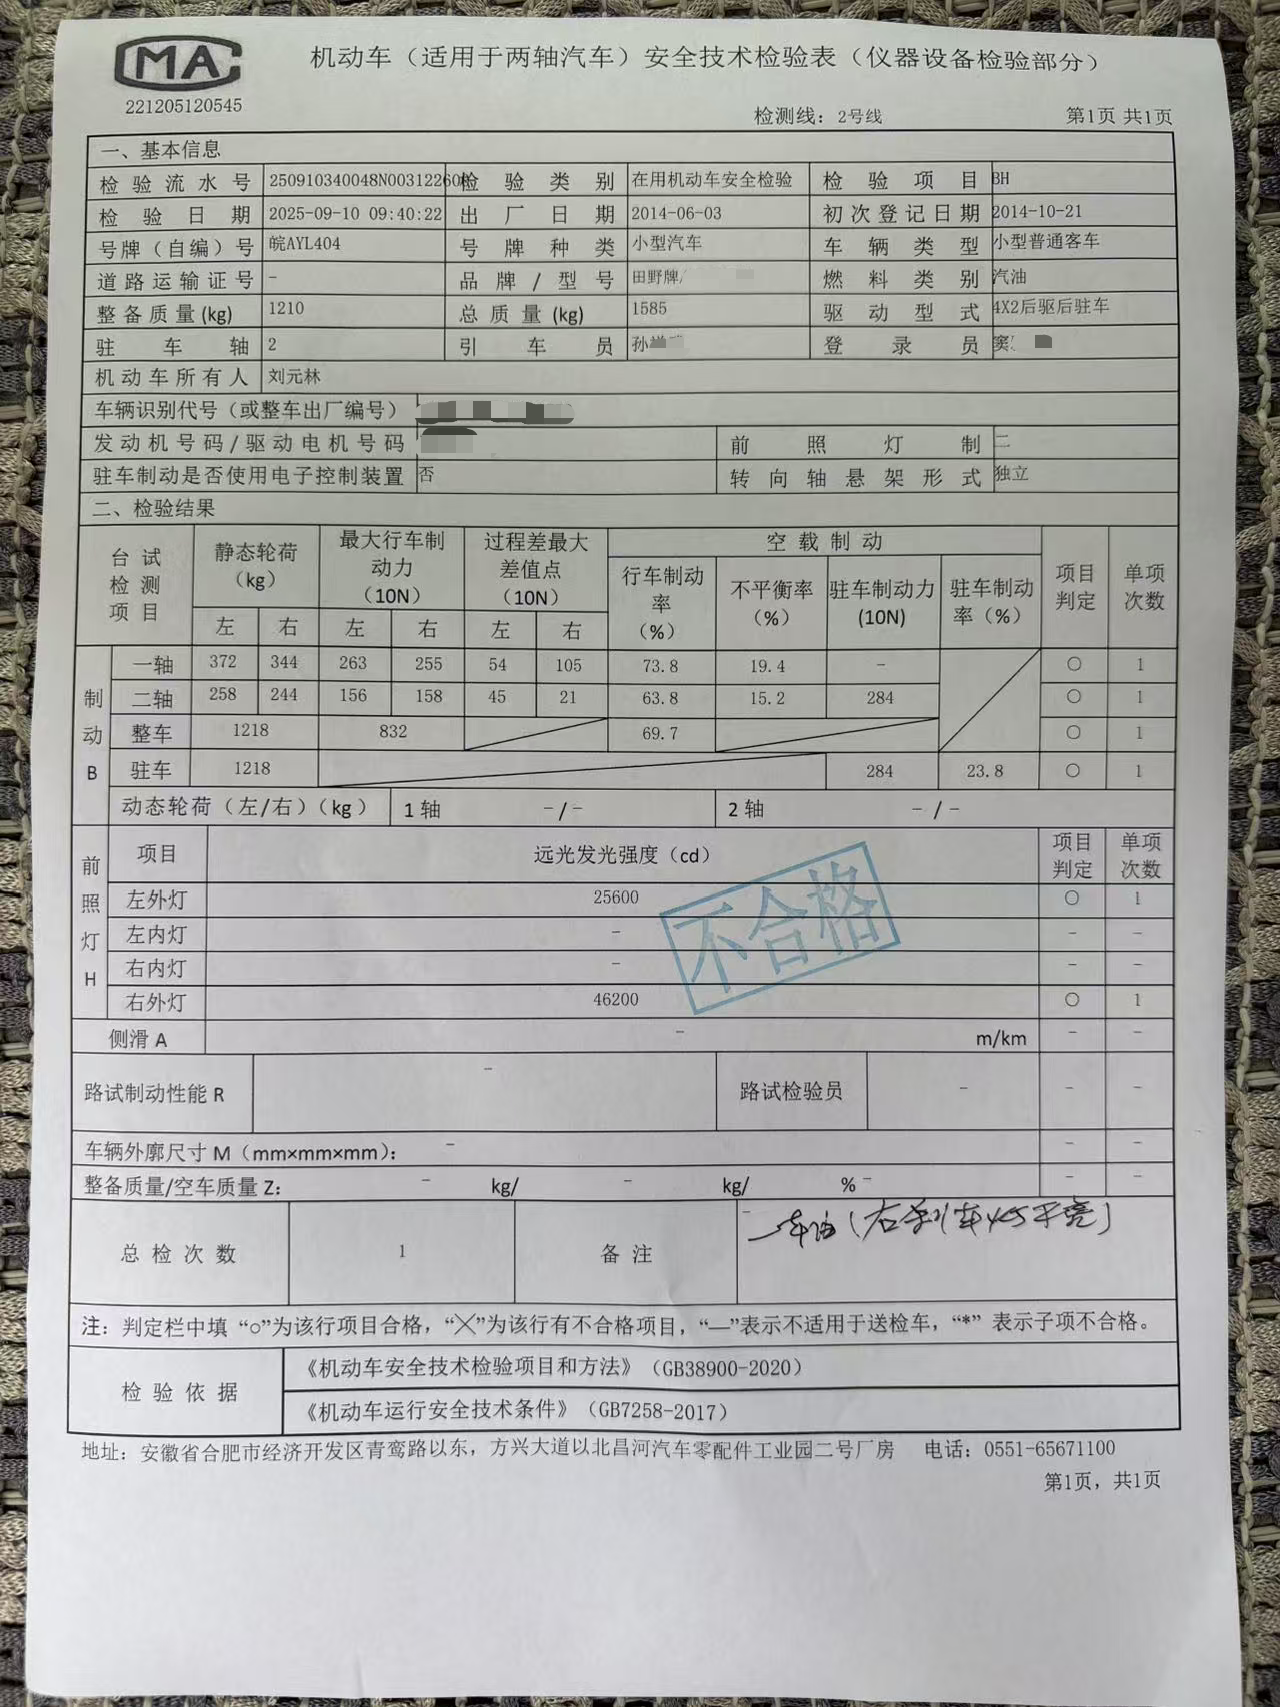 MA
221205120545
机动车（适用于两轴汽车）安全技术检验表（仪器设备检验部分）
检测线：2号线 第1页 共1页
一、基本信息
检验流水号 250910340048N003122608 检验类别 在用机动车安全检验 检验项目 BH
检验日期 2025-09-10 09:40:22 出厂日期 2014-06-03 初次登记日期 2014-10-21
号牌（自编）号 皖AYL404 号牌种类 小型汽车 车辆类型 小型普通客车
道路运输证号 - 品牌/型号 田野牌/ 燃料类别 汽油
整备质量(kg) 1210 总质量(kg) 1585 驱动型式 4X2后驱后驻车
驻车轴 2 引车员 孙 登录员 窦
机动车所有人 刘元林
车辆识别代号（或整车出厂编号）
发动机号码/驱动电机号码 前照灯制 二
驻车制动是否使用电子控制装置 否 转向轴悬架形式 独立
二、检验结果
台试检测项目 静态轮荷（kg） 最大行车制动力（10N） 过程差最大差值点（10N） 空载制动 项目判定 单项次数
行车制动率（%） 不平衡率（%） 驻车制动力(10N) 驻车制动率（%）
左 右 左 右 左 右
制动B
一轴 372 344 263 255 54 105 73.8 19.4 - ○ 1
二轴 258 244 156 158 45 21 63.8 15.2 284 ○ 1
整车 1218 832 69.7 ○ 1
驻车 1218 284 23.8 ○ 1
动态轮荷（左/右）(kg) 1轴 -/- 2轴 -/-
前照灯H
项目 远光发光强度（cd） 项目判定 单项次数
左外灯 25600 ○ 1
左内灯 - - -
右内灯 - - -
右外灯 46200 ○ 1
不合格
侧滑A - m/km - -
路试制动性能R - 路试检验员 - - -
车辆外廓尺寸M（mm×mm×mm）： - - -
整备质量/空车质量Z： - kg/ - kg/ %- - -
总检次数 1 备注 -
注：判定栏中填“○”为该行项目合格，“╳”为该行有不合格项目，“—”表示不适用于送检车，“*”表示子项不合格。
检验依据 《机动车安全技术检验项目和方法》（GB38900-2020）
《机动车运行安全技术条件》（GB7258-2017）
地址：安徽省合肥市经济开发区青鸾路以东，方兴大道以北昌河汽车零配件工业园二号厂房 电话：0551-65671100
第1页，共1页